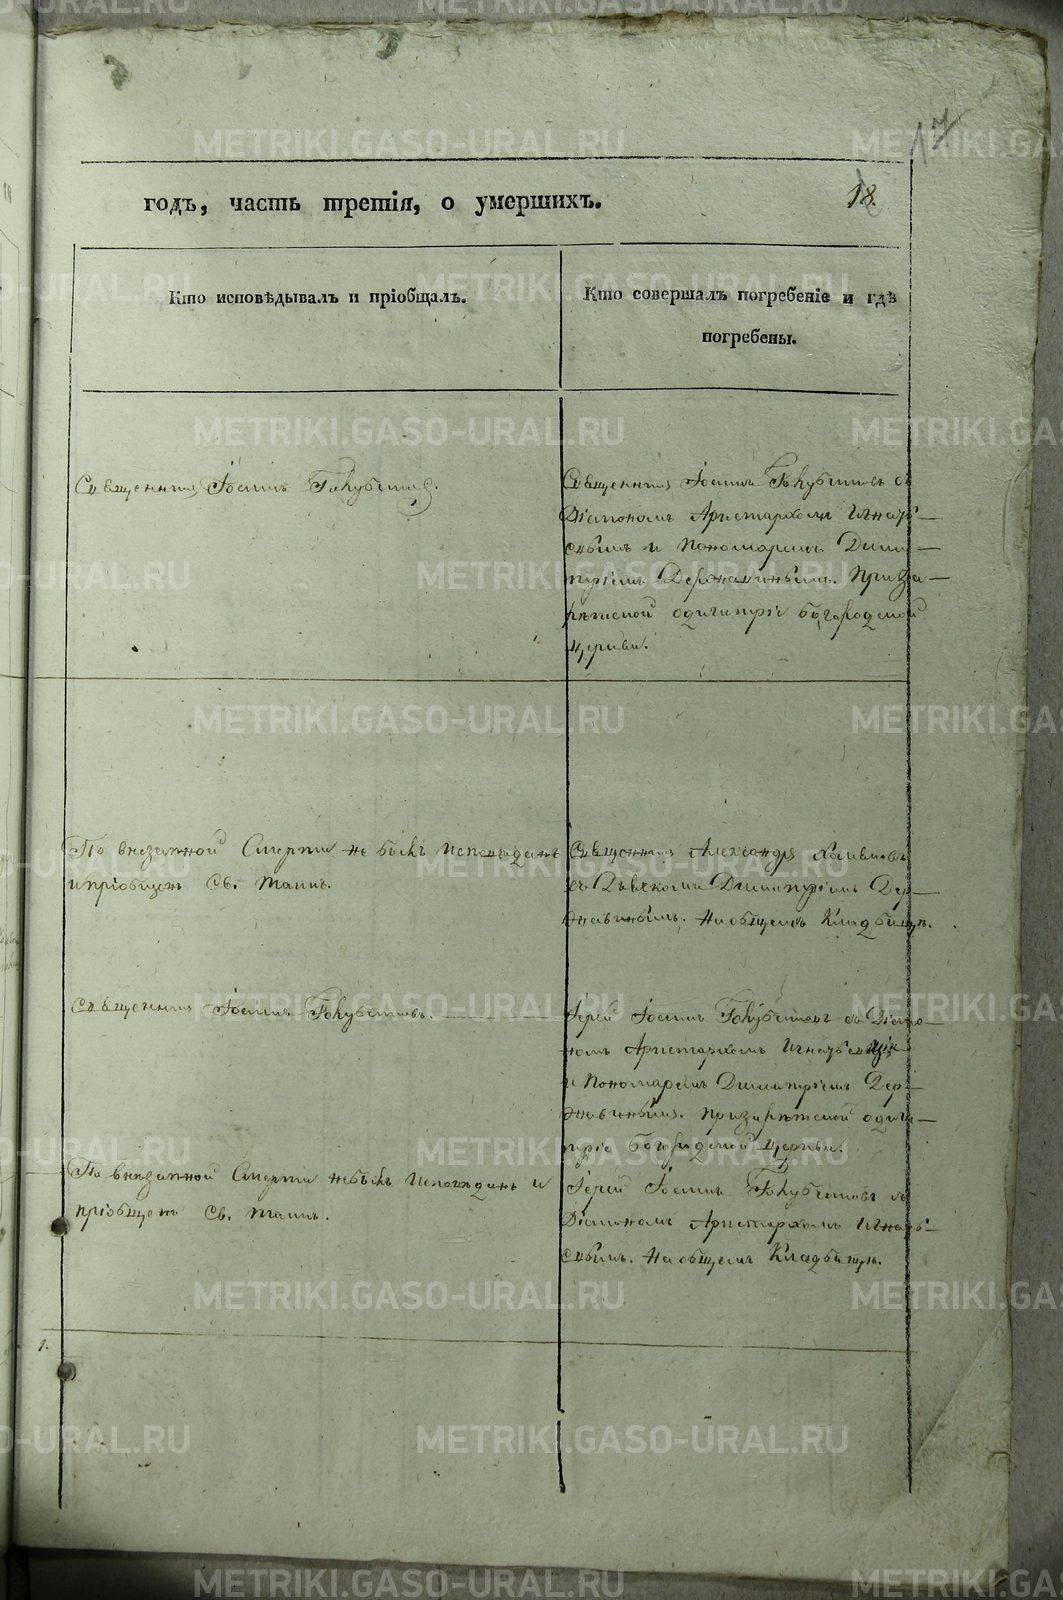 17
годъ, часть третія, о умершихъ.
18.
Кто исповѣдывалъ и пріобщалъ.
Кто совершалъ погребеніе и гдѣ
погребены.
Священникъ Іоаннъ
Священникъ Іоаннъ съ
Діакономъ Аристархомъ Игнать-
и Пономаремъ Дими-
тріемъ Державинымъ. При За-
одигитріе Богородской
церкви.
По внезапной Смерти не былъ Исповѣданъ
и пріобщенъ Св. Таинъ.
Священникъ Александръ
съ Димитріемъ Дер-
жавинымъ. На общемъ Кладбищѣ.
Священникъ Іоаннъ
Іерей Іоаннъ съ Діако-
номъ Аристархомъ
и Пономаремъ Димитріемъ Дер-
жавинымъ. При одиги-
тріе Богородской церкви.
По внезапной Смерти не былъ Исповѣданъ и
пріобщенъ Св. Таинъ.
Іерей Іоаннъ съ
Діакономъ Аристархомъ Игнать-
На общемъ Кладбищѣ.
1.
METRIKI.GASO-URAL.RU